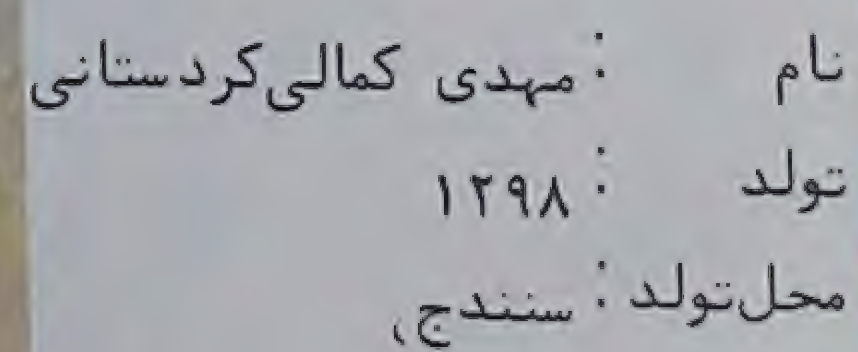 نام : مهدی کمالی‌کردستانی
تولد : ۱۲۹۸
محل‌تولد : سنندج،